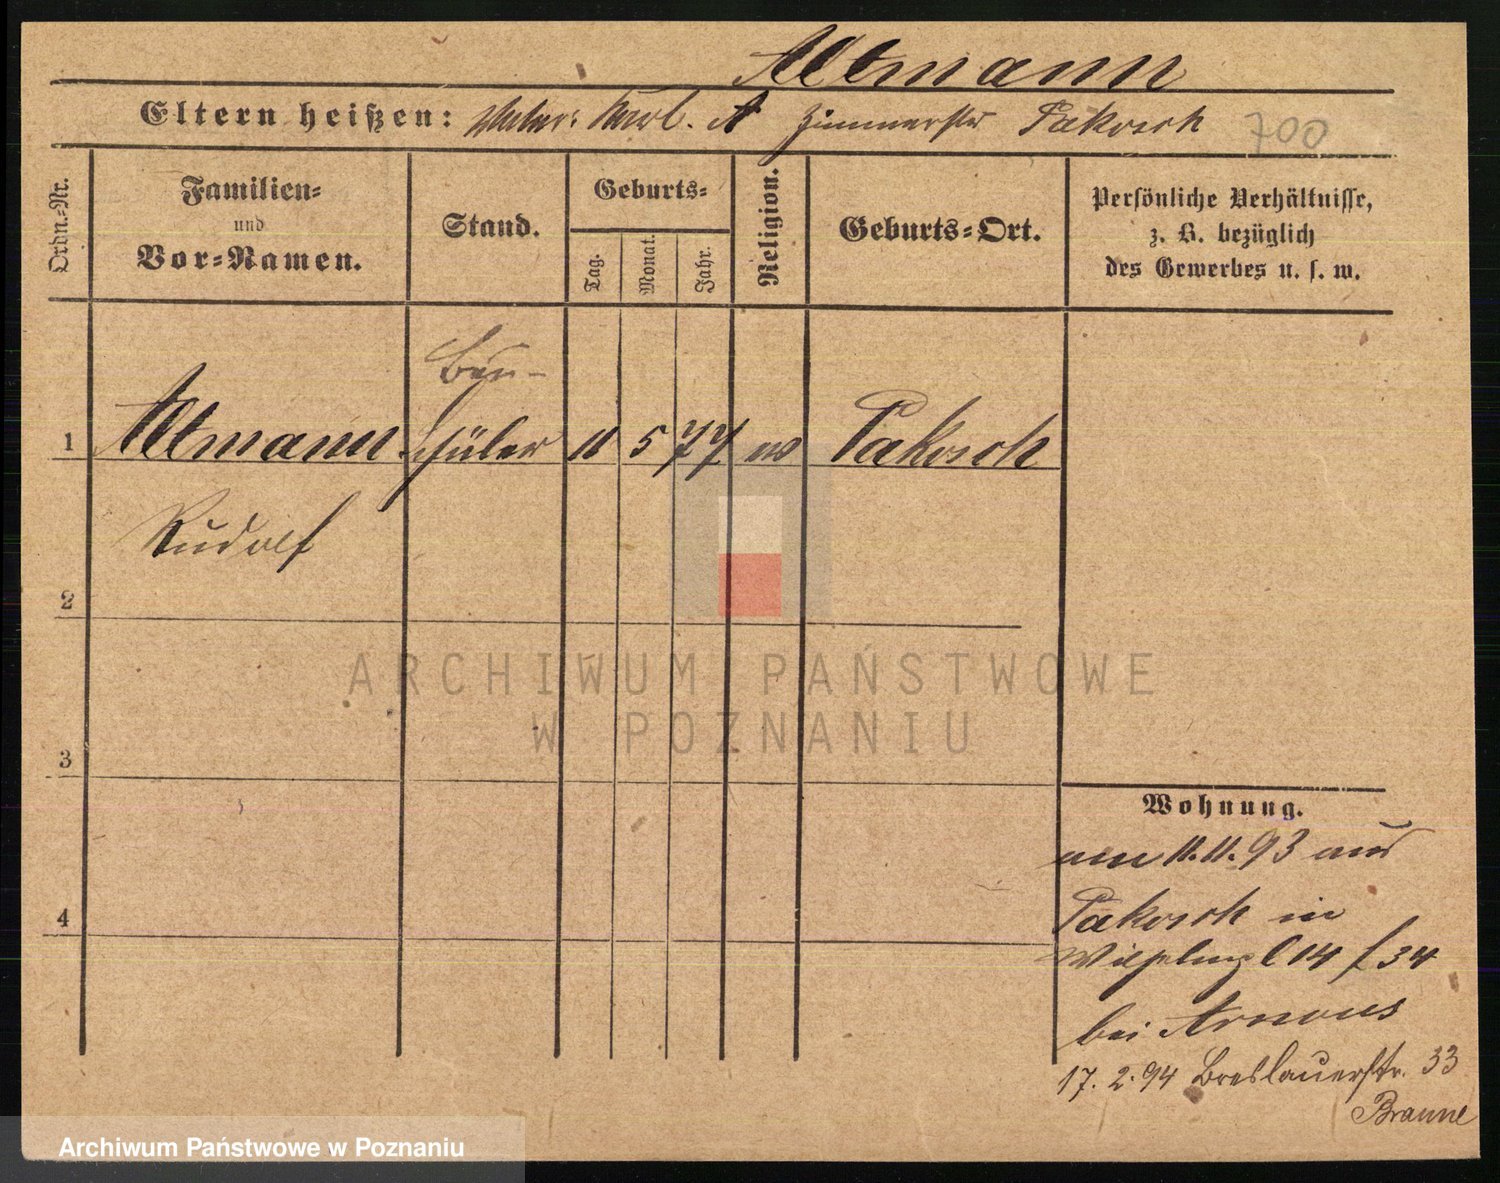 Altmann
Eltern heißen: Vater: Karl. A Zimmerstr Pakosch 700
Ordn.-Nr.
Familien-
und
Vor-Namen.
Stand.
Geburts-
Tag.
Monat.
Jahr.
Religion.
Geburts-Ort.
Persönliche Verhältnisse,
z. B. bezüglich
des Gewerbes u. s. w.
Bau-
1 Altmann Schüler 11 5 77 Pakosch
Rudolf
2
ARCHIWUM PAŃSTWOWE
W POZNANIU
3
Wohnung.
am 11.11.93 aus
4
Pakosch in
14 34
bei Arnous
17. 2. 94 Breslauerstr. 33
Braune
Archiwum Państwowe w Poznaniu